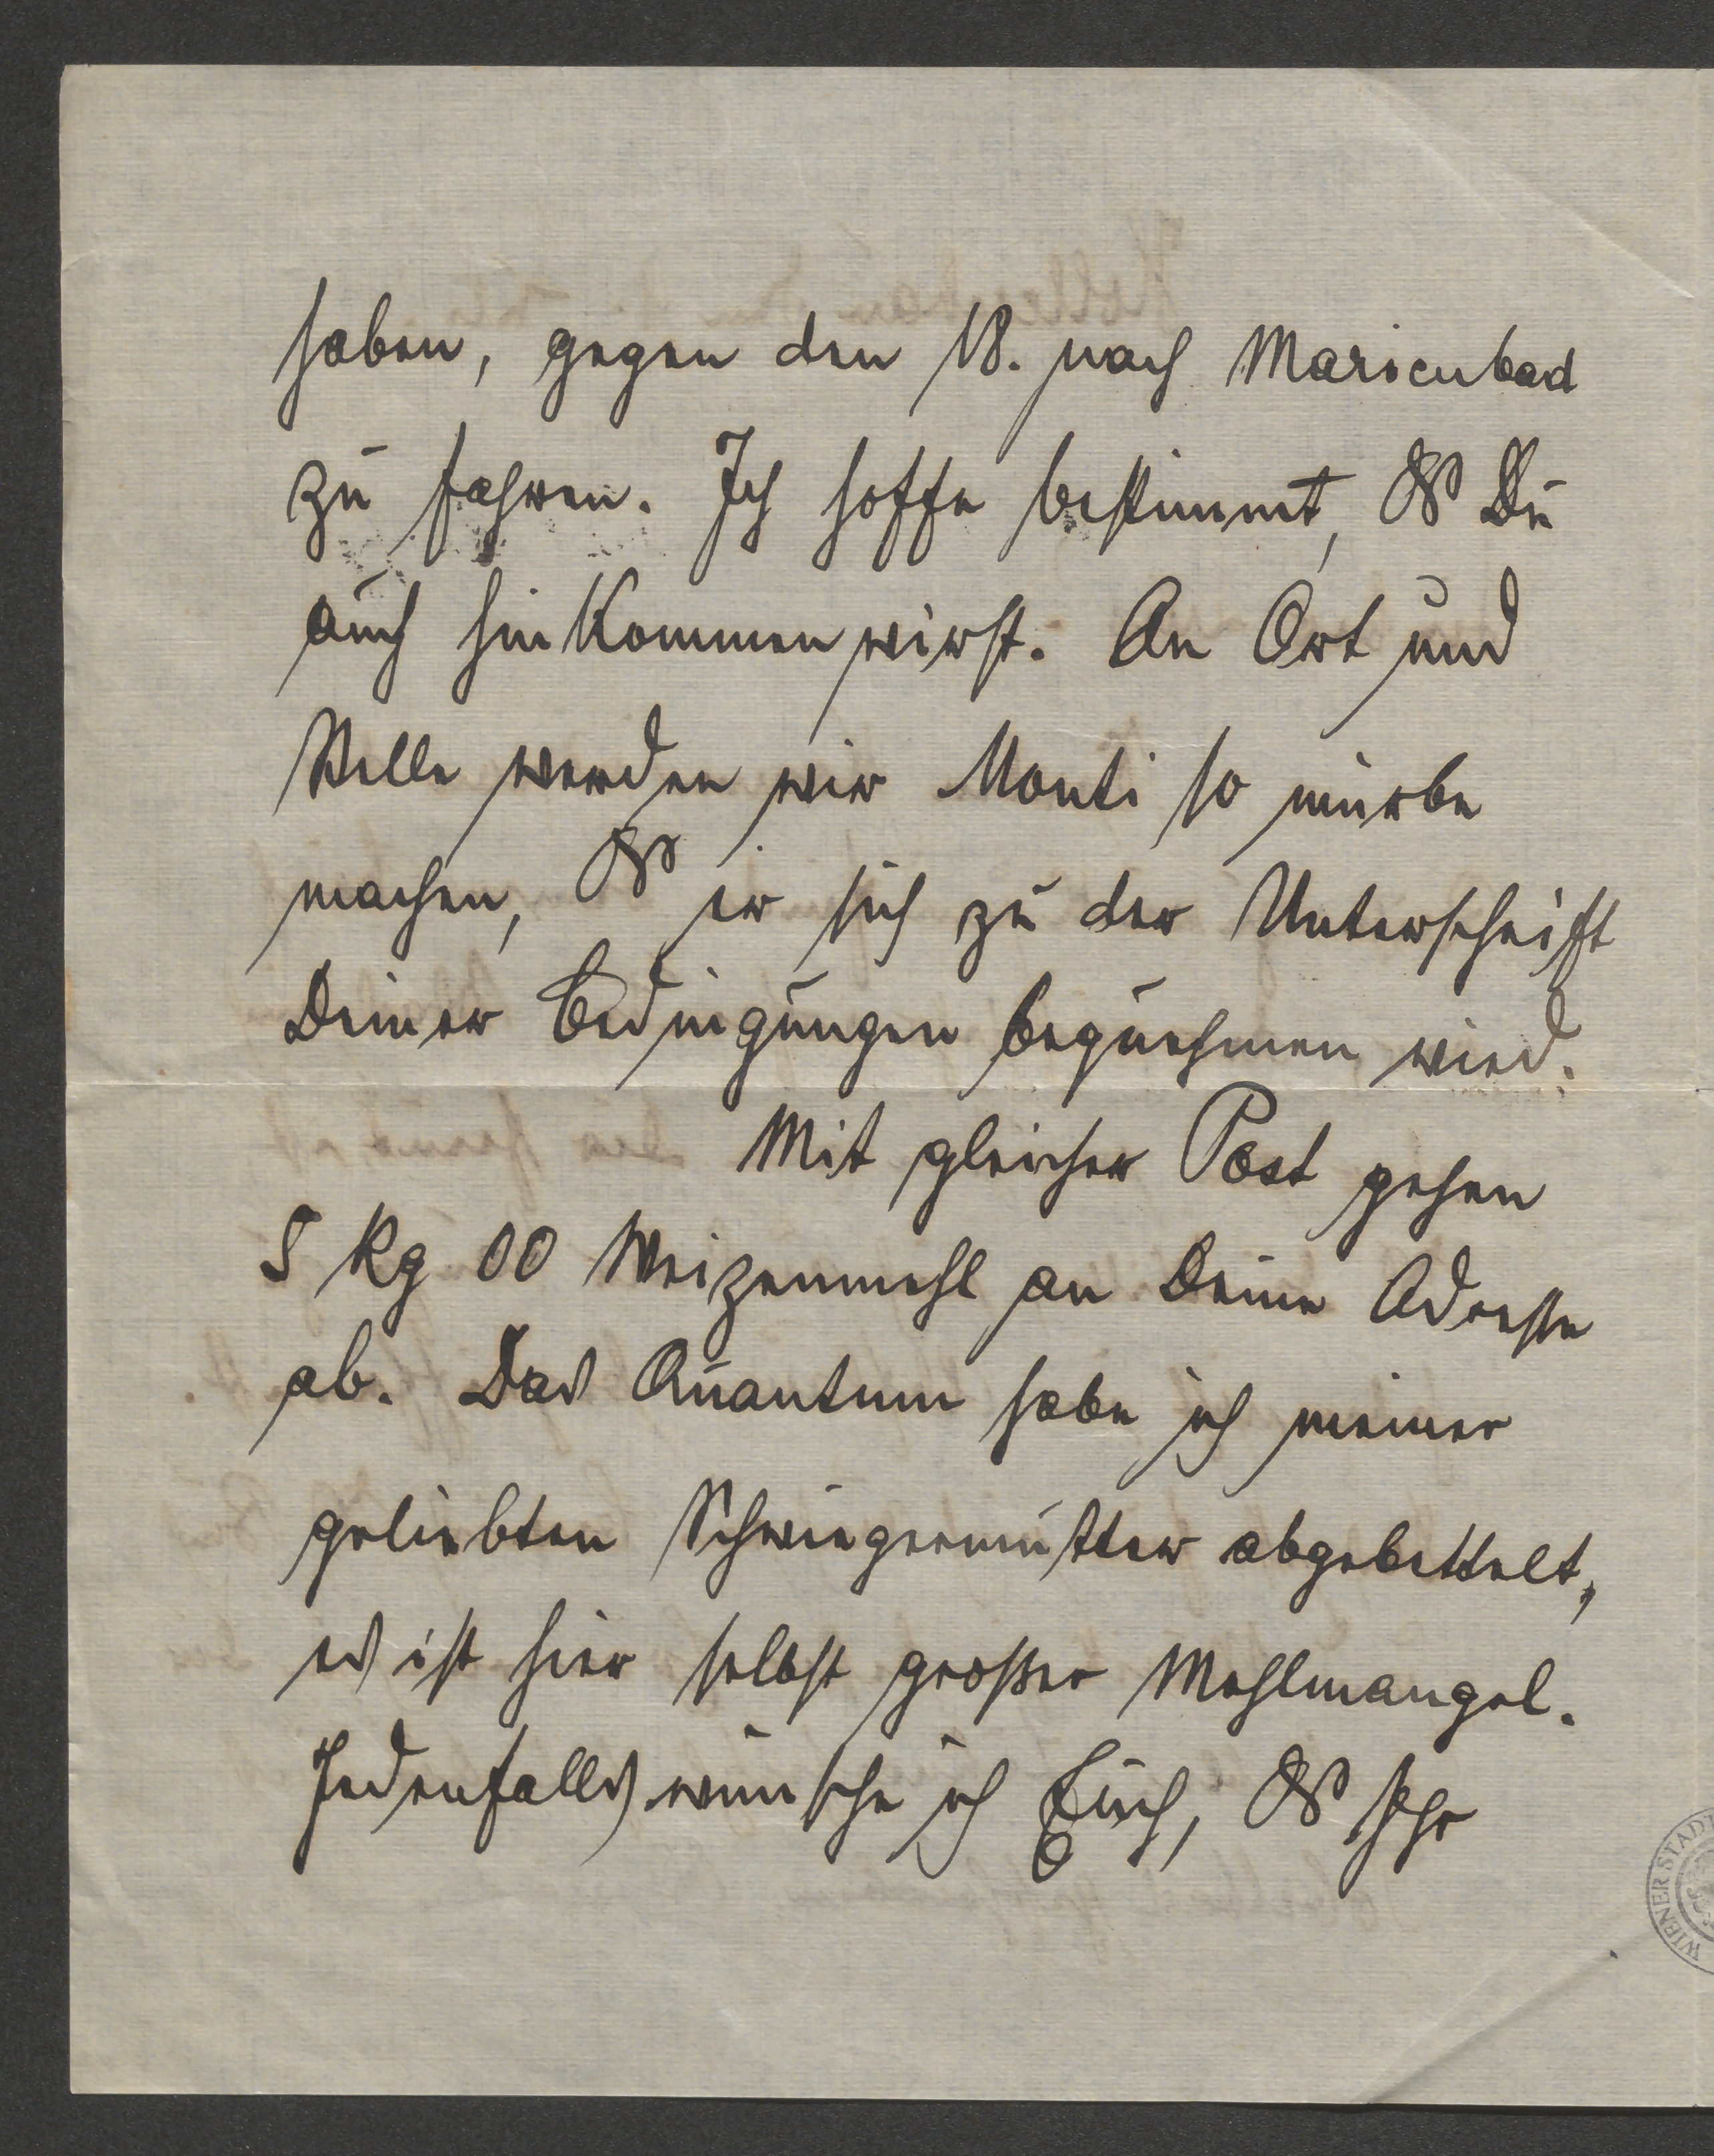 haben, gegen den 18. nach Marienbad
zu fahren. Ich hoffe bestimmt, dß Du
auch hinkommen wirst. An Ort und
Stelle werden wir Monti so mürbe
machen, dß er sich zu der Unterschrift
Deiner Bedingungen bequehmen wird.
Mit gleicher Post gehen
5 Kg 00 Weizenmehl an Deine Adresse
ab. Das Quantum habe ich meiner
geliebten Schwiegermutter abgebettelt,
es ist hier selbst großer Mehlmangel.
Jedenfalls wünsche ich Euch, dß Ihr
WIENER STADT